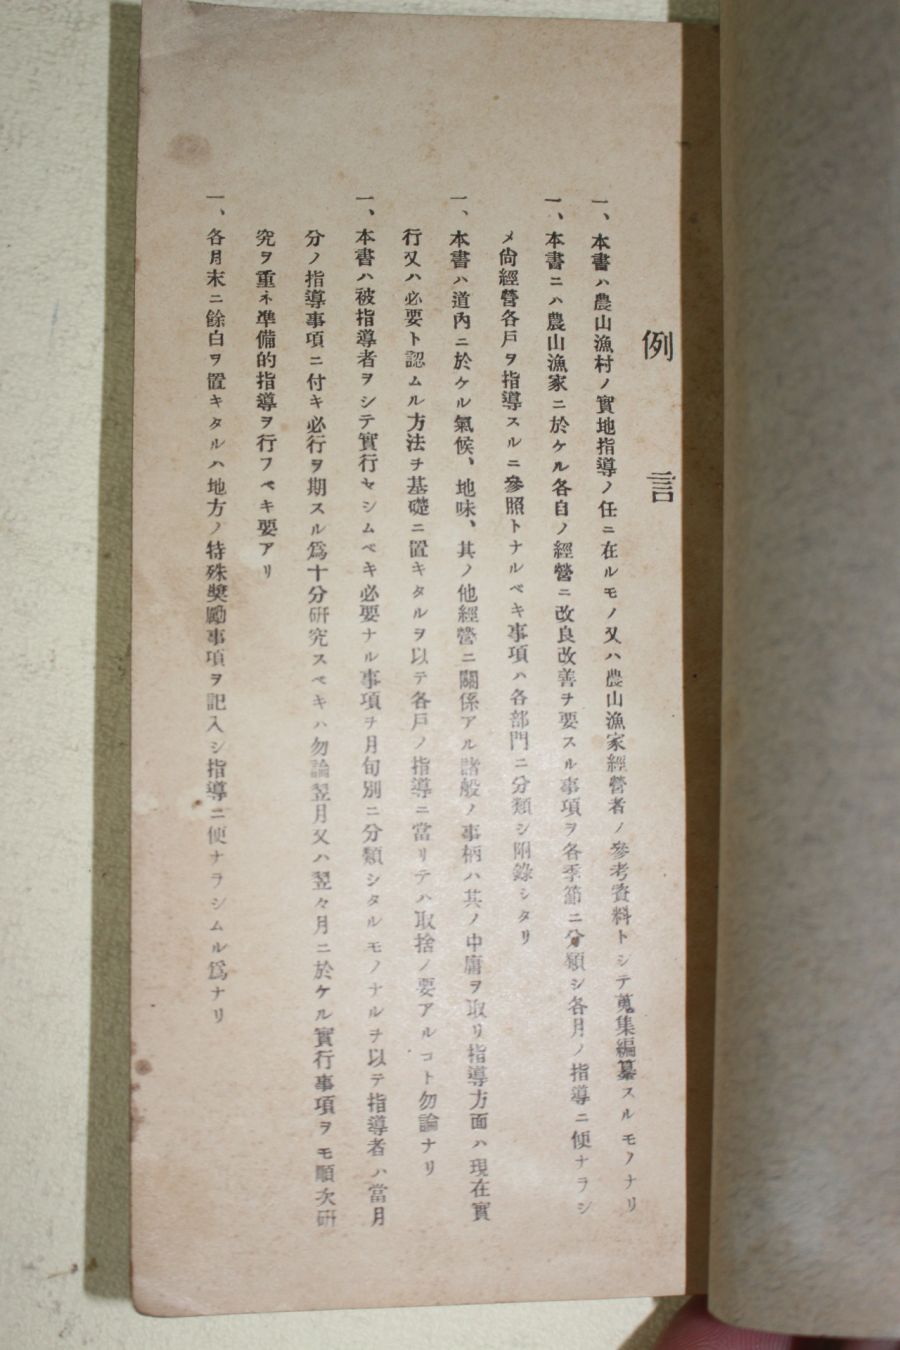 例言
一、本書ハ農山漁村ノ實地指導ノ任ニ在ルモノ又ハ農山漁家經營者ノ參考資料トシテ蒐集編纂スルモノナリ
一、本書ニハ農山漁家ニ於ケル各自ノ經營ニ改良改善ヲ要スル事項ヲ各季節ニ分類シ各月ノ指導ニ便ナラシ
メ尙經營各戶ヲ指導スルニ參照トナルベキ事項ハ各部門ニ分類シ附錄シタリ
一、本書ハ道內ニ於ケル氣候、地味、其ノ他經營ニ關係アル諸般ノ事柄ハ其ノ中庸ヲ取リ指導方面ハ現在實
行又ハ必要ト認ムル方法ヲ基礎ニ置キタルヲ以テ各戶ノ指導ニ當リテハ取捨ノ要アルコト勿論ナリ
一、本書ハ被指導者ヲシテ實行セシムベキ必要ナル事項ヲ月旬別ニ分類シタルモノナルヲ以テ指導者ハ當月
分ノ指導事項ニ付キ必行ヲ期スル爲十分硏究スベキハ勿論翌月又ハ翌々月ニ於ケル實行事項ヲモ順次硏
究ヲ重ネ準備的指導ヲ行フベキ要アリ
一、各月末ニ餘白ヲ置キタルハ地方ノ特殊奬勵事項ヲ記入シ指導ニ便ナラシムル爲ナリ